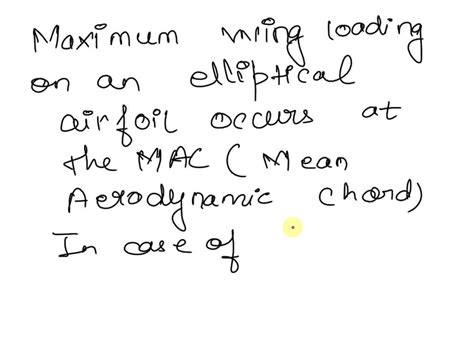 Maximum wring loading
on an elliptical
airfoil occurs at
the MAC ( Mean
Aerodynamic chord)
In case of